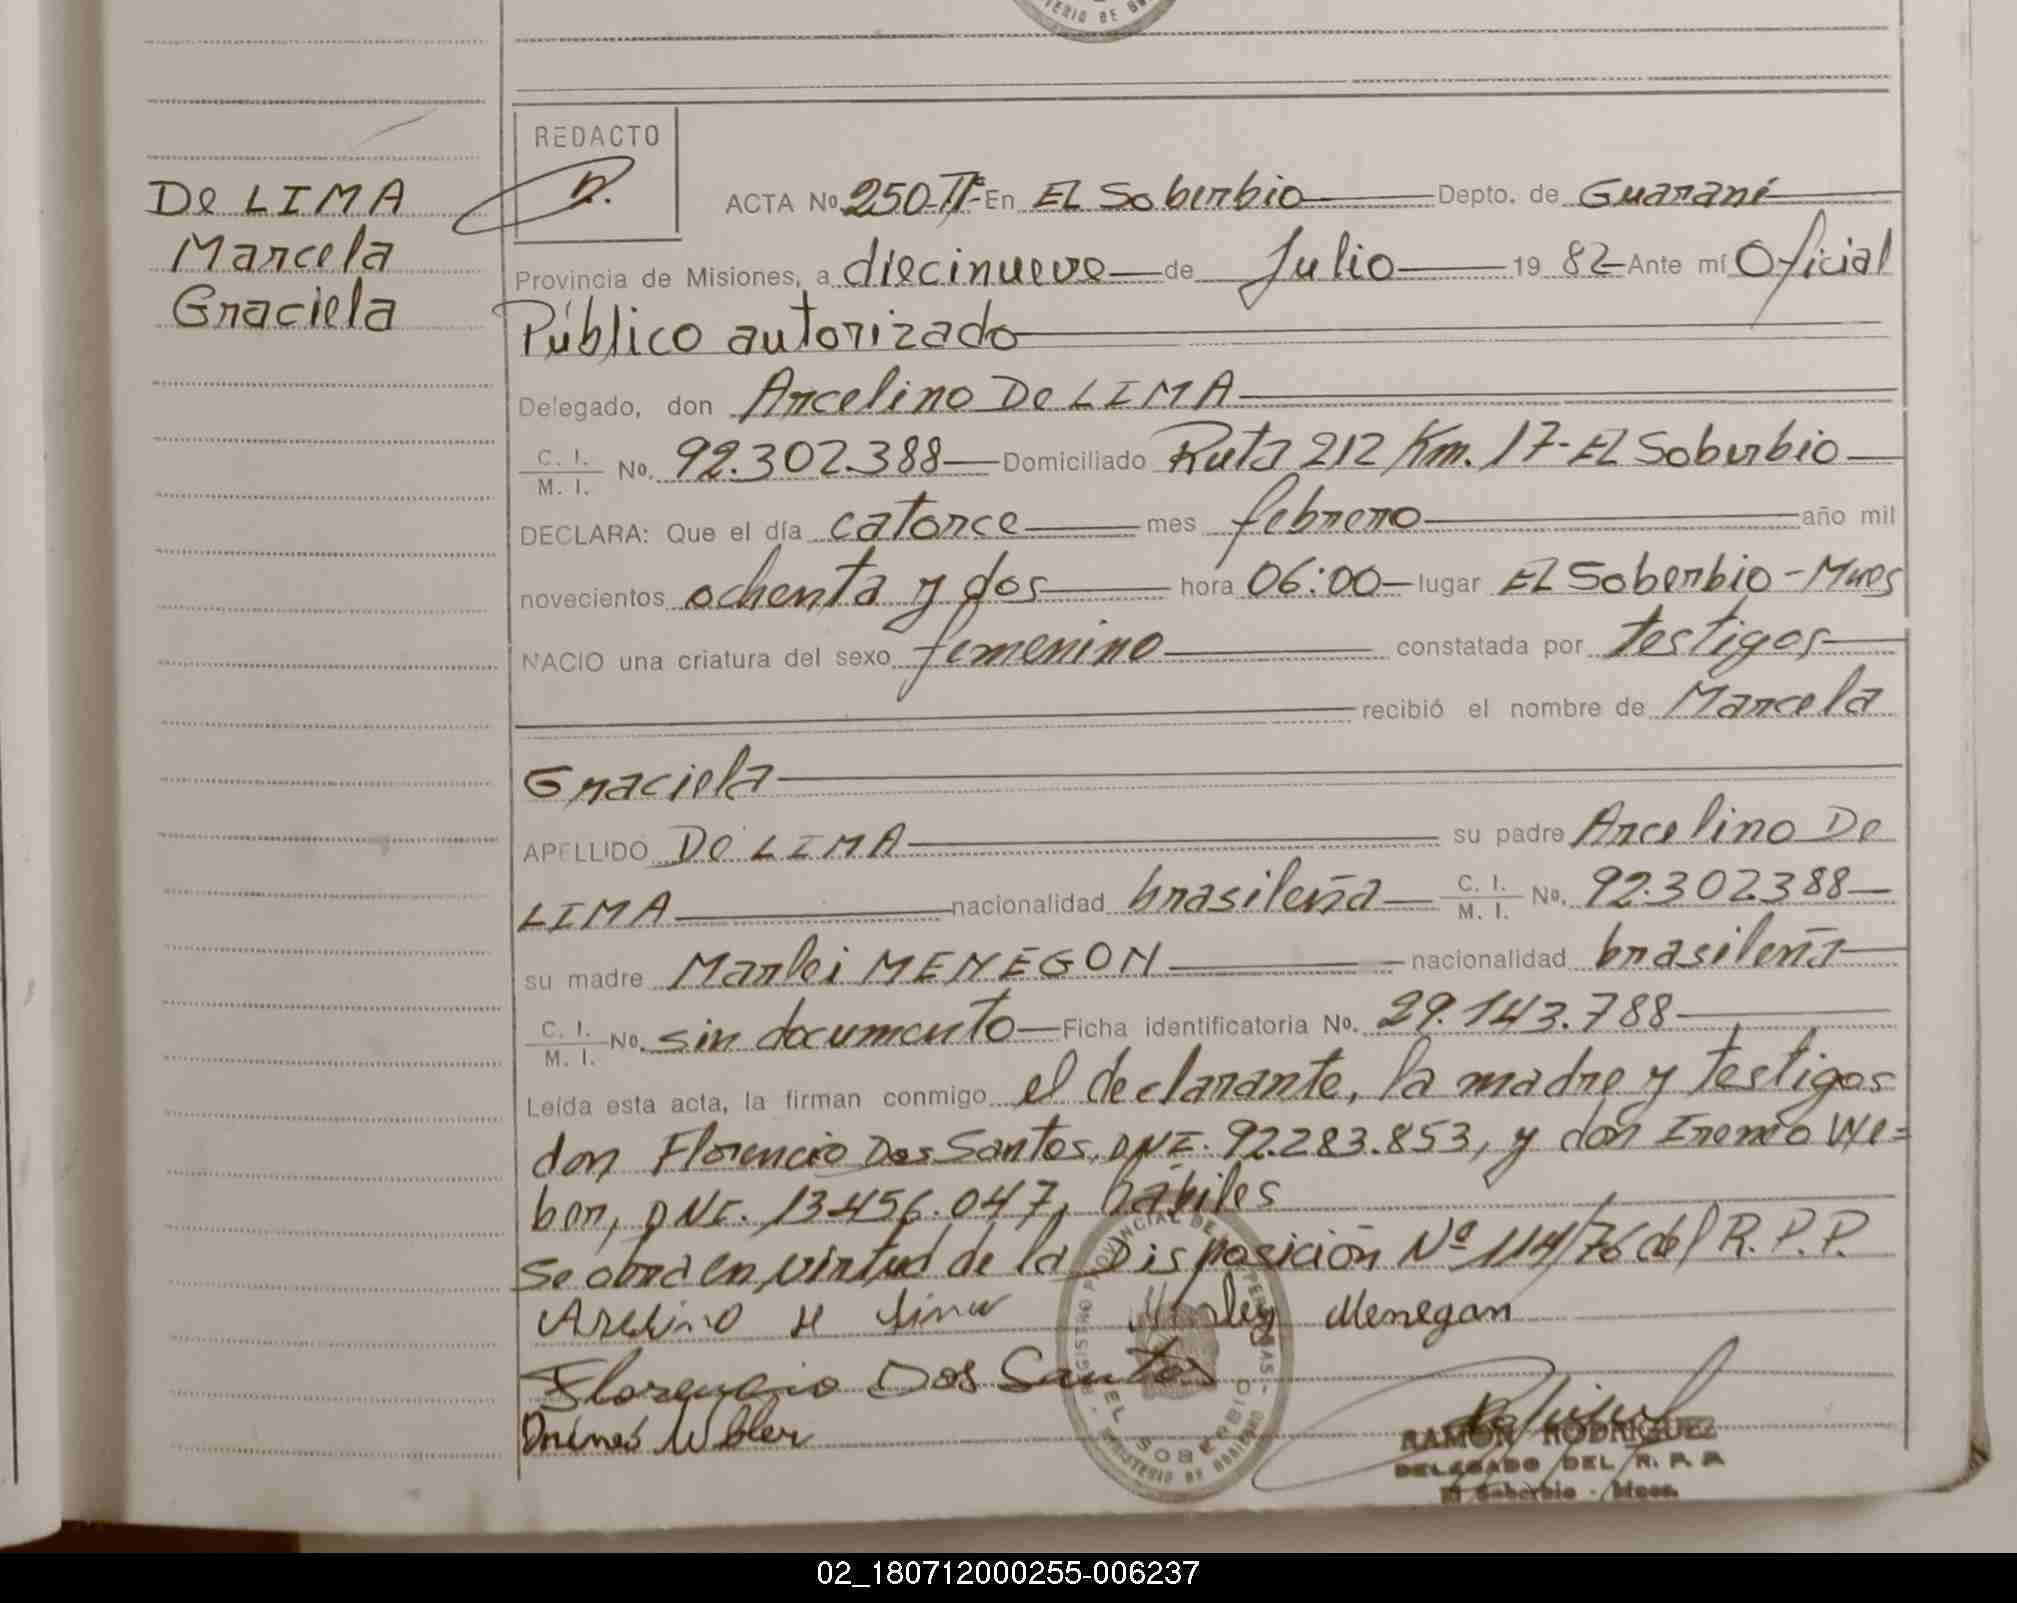 TERIO DE
REDACTO
De LIMA
Marcela
Graciela
ACTA No 250-IIº- En EL Soberbio Depto. de Guaraní
Provincia de Misiones, a diecinueve de Julio 19 82 Ante mí Oficial
Público autorizado
Delegado, don Arcelino De LIMA
C. I. M. I. No. 92.302.388 Domiciliado Ruta 212 Km. 17- EL Soberbio
DECLARA: Que el día catorce mes febrero año mil
novecientos ochenta y dos hora 06:00 lugar EL Soberbio - Mnes
NACIO una criatura del sexo femenino constatada por testigos
recibió el nombre de Marcela
Graciela
APELLIDO De LIMA su padre Arcelino De
LIMA nacionalidad brasileña C. I. M. I. No. 92.302.388
su madre Marlei MENEGON nacionalidad brasileña
C. I. M. I. No. sin documento Ficha identificatoria No. 29.143.788
Leída esta acta, la firman conmigo el declarante, la madre y testigos
don Florencio Dos Santos, DNI. 92.283.853, y don Ireneo We=
ber, DNI. 13.456.047, hábiles
Se obra en virtud de la Disposición Nº 114/76 del R.P.P.
Arcelino de Lima Marley Menegon
Florencio Dos Santos
Weber
REGISTRO PROVINCIAL DE LAS PERSONAS
EL SOBERBIO
MINISTERIO DE GOBIERNO
RAMON RODRIGUEZ
DELEGADO DEL R. P. P.
El Soberbio - Mnes.
02_180712000255-006237